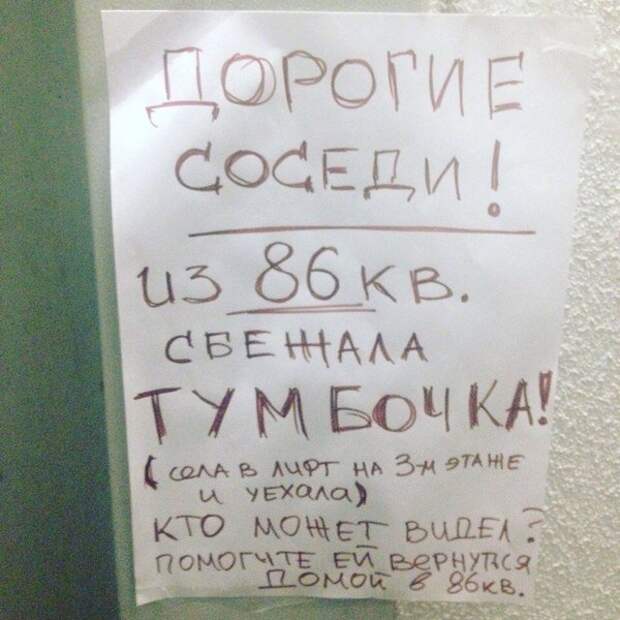 ДОРОГИЕ
СОСЕДИ!
ИЗ 86 КВ.
СБЕЖАЛА
ТУМБОЧКА!
(СЕЛА В ЛИФТ НА 3-М ЭТАЖЕ
И УЕХАЛА)
КТО МОЖЕТ ВИДЕЛ?
ПОМОГИТЕ ЕЙ ВЕРНУТЬСЯ
ДОМОЙ В 86КВ.